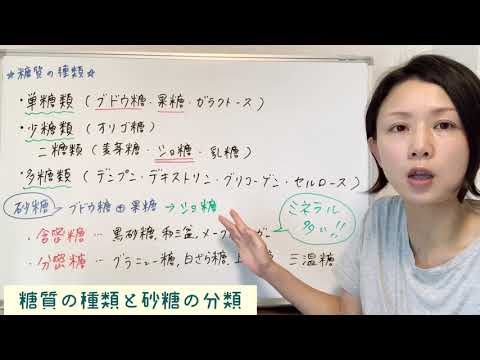 ☆糖質の種類☆
・単糖類(ブドウ糖・果糖・ガラクトース)
・少糖類(オリゴ糖)
二糖類(麦芽糖・ショ糖・乳糖)
・多糖類(デンプン・デキストリン・グリコーゲン・セルロース)
砂糖 ブドウ糖⊕果糖→ショ糖
・含密糖…黒砂糖,和三盆,メープ
ミネラル
多い!!
・分密糖…グラニュー糖,白ざら糖,上 三温糖
糖質の種類と砂糖の分類